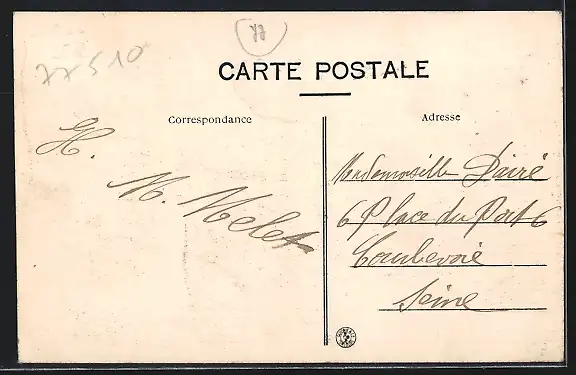 77
77510
CARTE POSTALE
Correspondance
Adresse
H.
M. Melet
Mademoiselle Dairé
6 Place du Port 6
Courbevoie
Seine